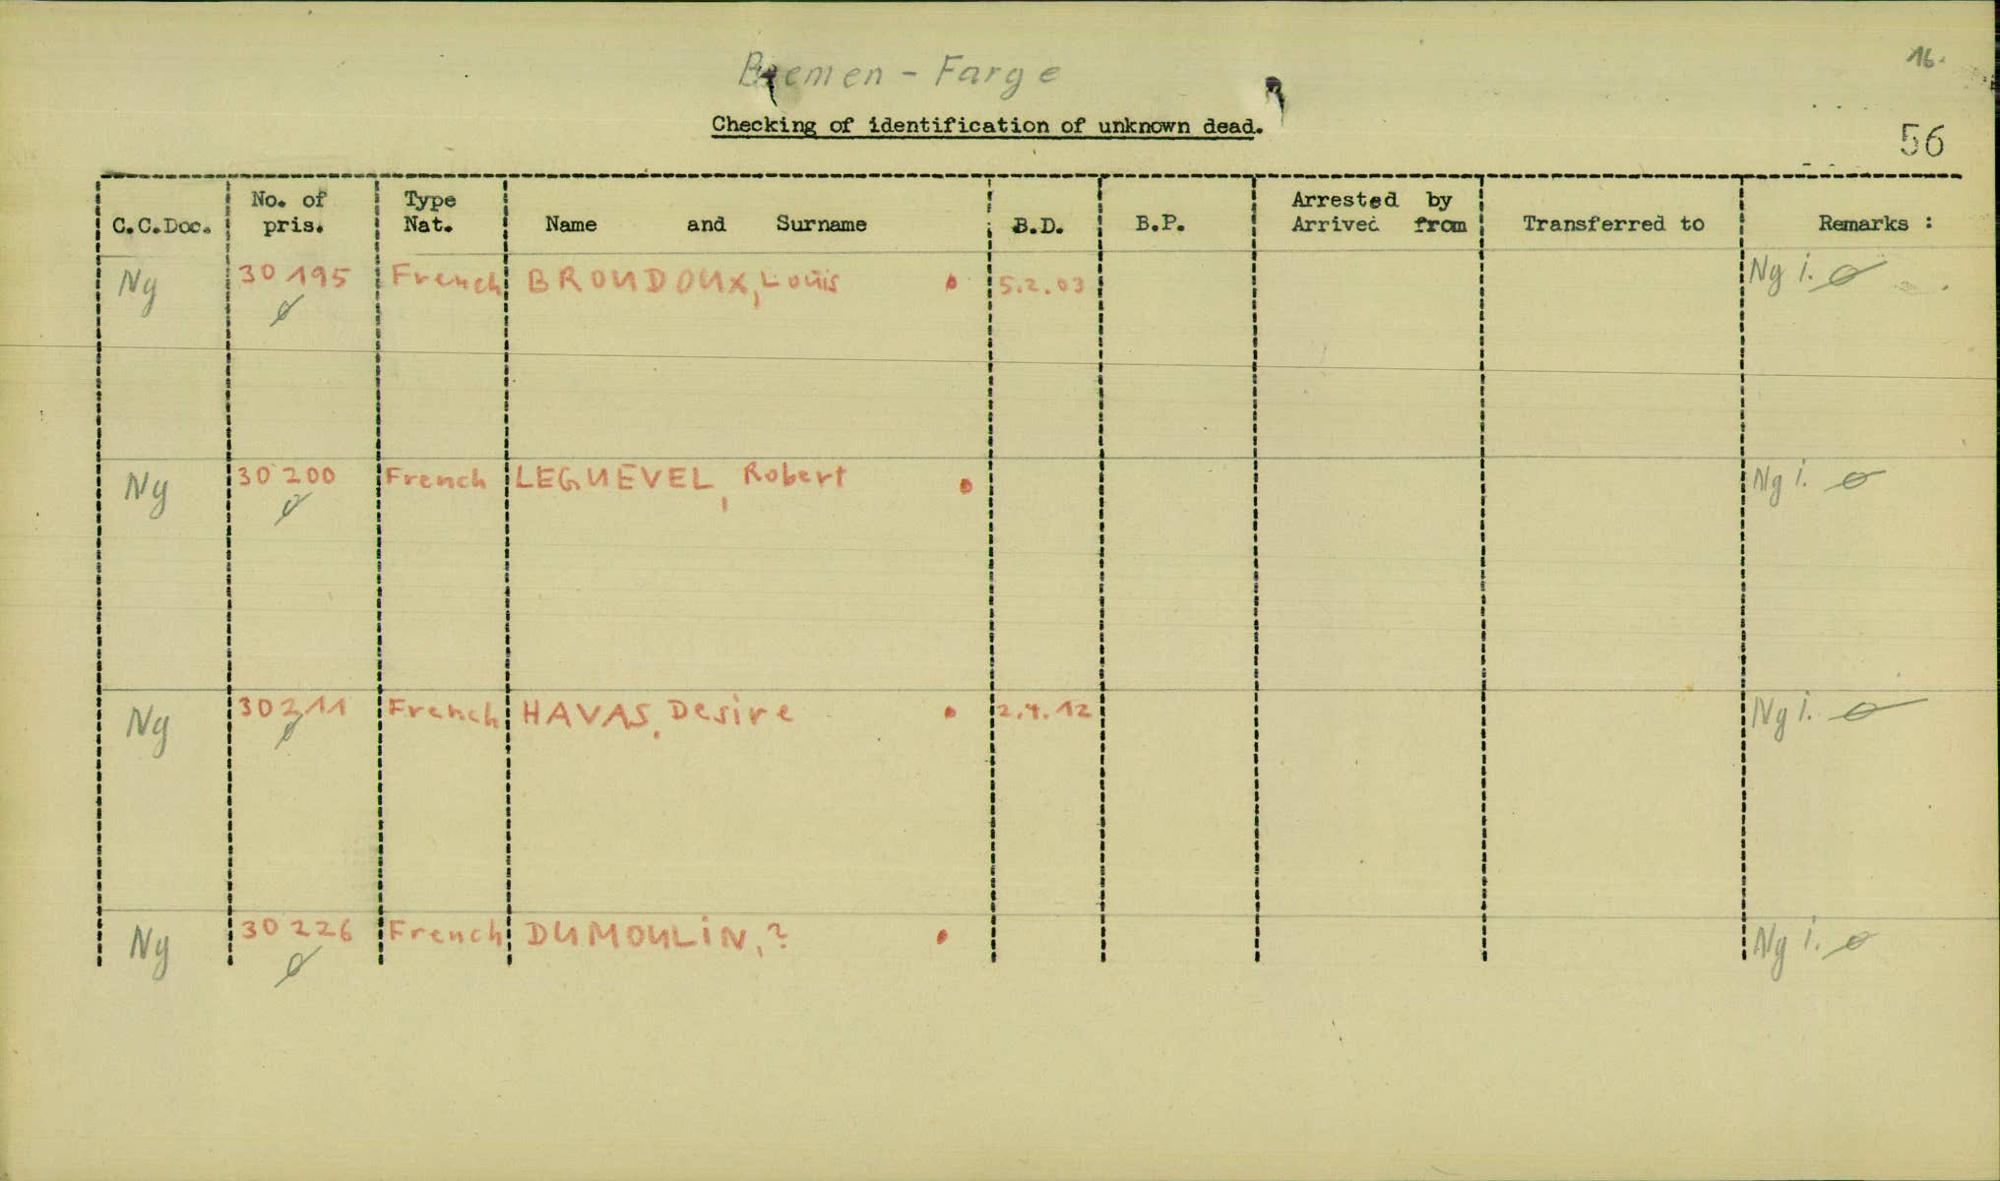 16.
Bremen - Farge
Checking of identification of unknown dead.
56
C.C.Doc. No. of pris. Type Nat. Name and Surname B.D. B.P. Arrested by Arrived from Transferred to Remarks :
Ny 30 195 French BROUDOUX, Louis 5.2.03 Ny i. ø
ø
Ny 30 200 French LEGUEVEL, Robert Ny i. ø
ø
Ny 30 211 French HAVAS, Desire 2.4.12 Ny i. ø
ø
Ny 30 226 French DUMOULIN, ? Ny i. ø
ø